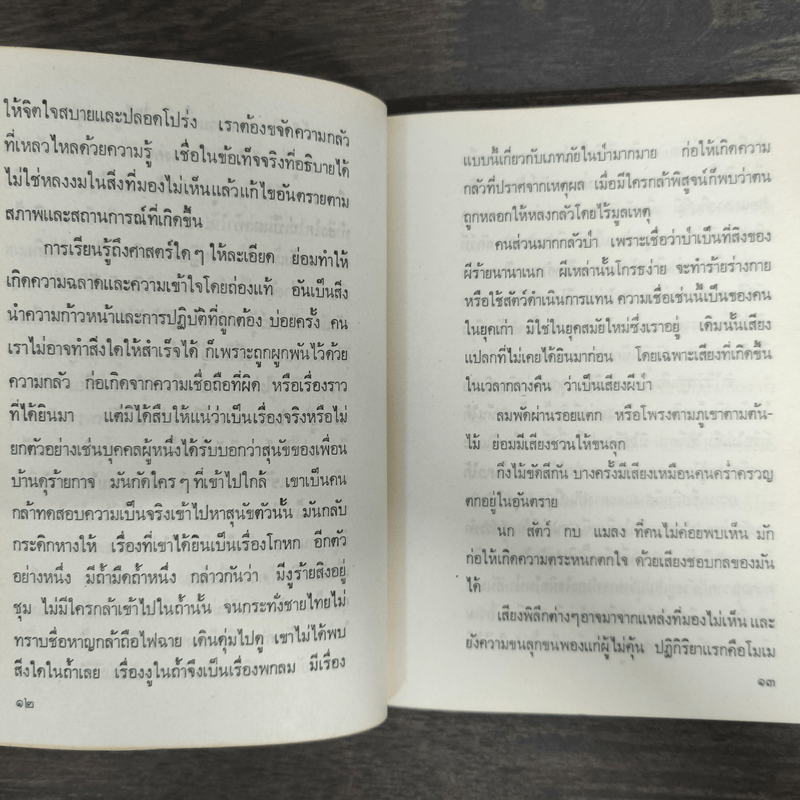 ให้จิตใจสบายและปลอดโปร่ง เราต้องขจัดความกลัว
ที่เหลวไหลด้วยความรู้ เชื่อในข้อเท็จจริงที่อธิบายได้
ไม่ใช่หลงงมในสิ่งที่มองไม่เห็นแล้วแก้ไขอันตรายตาม
สภาพและสถานการณ์ที่เกิดขึ้น
การเรียนรู้ถึงศาสตร์ใดๆ ให้ละเอียด ย่อมทำให้
เกิดความฉลาดและความเข้าใจโดยถ่องแท้ อันเป็นสิ่ง
นำความก้าวหน้าและการปฏิบัติที่ถูกต้อง บ่อยครั้ง คน
เราไม่อาจทำสิ่งใดให้สำเร็จได้ ก็เพราะถูกผูกพันไว้ด้วย
ความกลัว ก่อเกิดจากความเชื่อถือที่ผิด หรือเรื่องราว
ที่ได้ยินมา แต่มิได้สืบให้แน่ว่าเป็นเรื่องจริงหรือไม่
ยกตัวอย่างเช่นบุคคลผู้หนึ่งได้รับบอกว่าสุนัขของเพื่อน
บ้านดุร้ายกาจ มันกัดใครๆ ที่เข้าไปใกล้ เขาเป็นคน
กล้าทดสอบความเป็นจริงเข้าไปหาสุนัขตัวนั้น มันกลับ
กระดิกหางให้ เรื่องที่เขาได้ยินเป็นเรื่องโกหก อีกตัว
อย่างหนึ่ง มีถ้ำมืดถ้ำหนึ่ง กล่าวกันว่า มีงูร้ายสิงอยู่
ชุม ไม่มีใครกล้าเข้าไปในถ้ำนั้น จนกระทั่งชายไทยไม่
ทราบชื่อหาญกล้าถือไฟฉาย เดินดุ่มไปดู เขาไม่ได้พบ
สิ่งใดในถ้ำเลย เรื่องงูในถ้ำจึงเป็นเรื่องพกลม มีเรื่อง
๑๒
แบบนี้เกี่ยวกับเภทภัยในป่ามากมาย ก่อให้เกิดความ
กลัวที่ปราศจากเหตุผล เมื่อมีใครกล้าพิสูจน์ก็พบว่าตน
ถูกหลอกให้หลงกลัวโดยไร้มูลเหตุ
คนส่วนมากกลัวป่า เพราะเชื่อว่าป่าเป็นที่สิงของ
ผีร้ายนานาเนก ผีเหล่านั้นโกรธง่าย จะทำร้ายร่างกาย
หรือใช้สัตว์ดำเนินการแทน ความเชื่อเช่นนี้เป็นของคน
ในยุคเก่า มิใช่ในยุคสมัยใหม่ซึ่งเราอยู่ เดิมนั้นเสียง
แปลกที่ไม่เคยได้ยินมาก่อน โดยเฉพาะเสียงที่เกิดขึ้น
ในเวลากลางคืน ว่าเป็นเสียงผีป่า
ลมพัดผ่านรอยแตก หรือโพรงตามภูเขาตามต้น-
ไม้ ย่อมมีเสียงชวนให้ขนลุก
กิ่งไม้ขัดสีกัน บางครั้งมีเสียงเหมือนคนคร่ำครวญ
ตกอยู่ในอันตราย
นก สัตว์ กบ แมลง ที่คนไม่ค่อยพบเห็น มัก
ก่อให้เกิดความตระหนกตกใจ ด้วยเสียงชอบกลของมัน
ได้
เสียงพิลึกต่างๆอาจมาจากแหล่งที่มองไม่เห็น และ
ยังความขนลุกขนพองแก่ผู้ไม่คุ้น ปฏิกิริยาแรกคือโมเม
๑๓